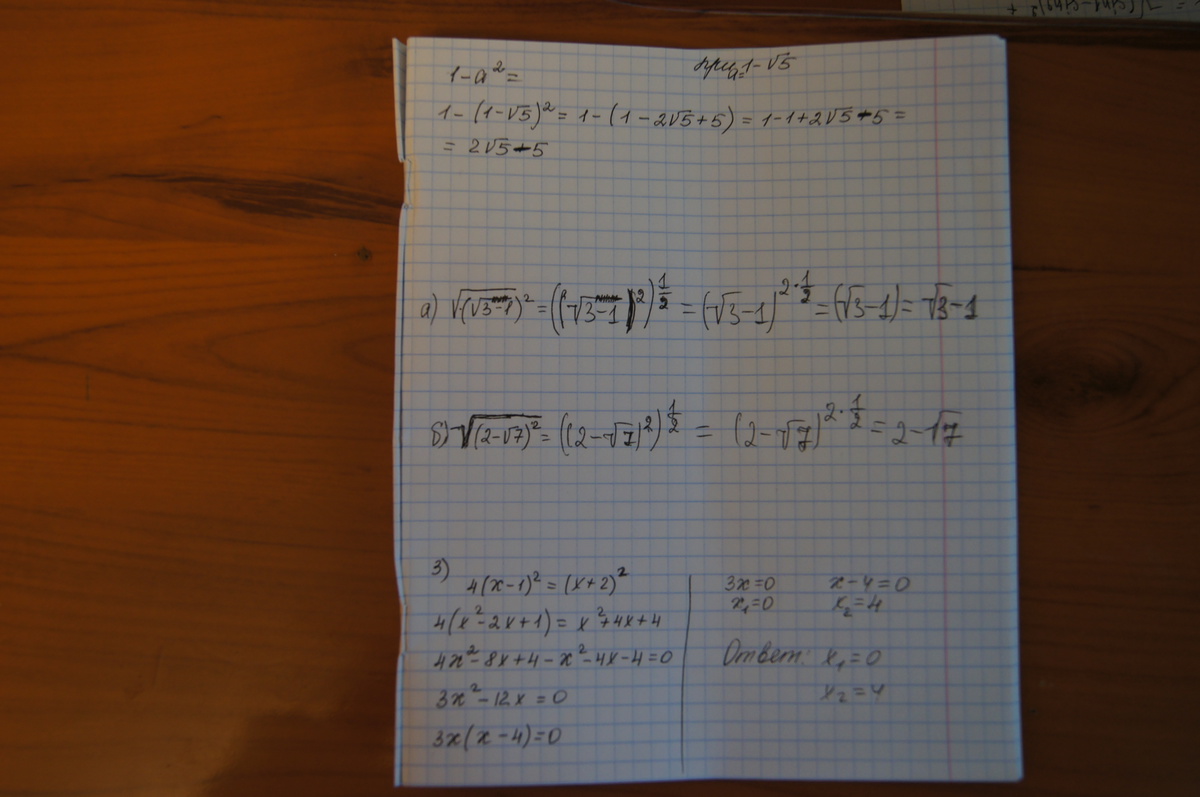 1-a²= при a=1-√5
1-(1-√5)²=1-(1-2√5+5)=1-1+2√5-5=
= 2√5-5
а) √(√3-1)² = ((√3-1)²)^(1/2) = (√3-1)^(2·1/2) = (√3-1) = √3-1
б) √(2-√7)² = ((2-√7)²)^(1/2) = (2-√7)^(2·1/2) = 2-√7
3)
4(x-1)²=(x+2)²
4(x²-2x+1)=x²+4x+4
4x²-8x+4-x²-4x-4=0
3x²-12x=0
3x(x-4)=0
3x=0 x-4=0
x₁=0 x₂=4
Ответ: x₁=0
x₂=4